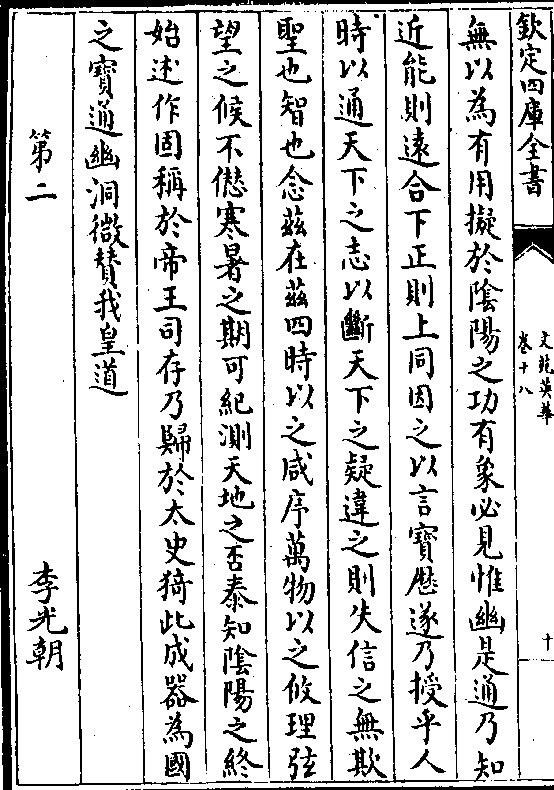 欽定四庫全書
文苑英華
卷十八
十
無以為有用擬於陰陽之功有象必見惟幽是通乃知
近能則遠合下正則上同因之以言寶厯遂乃授乎人
時以通天下之志以斷天下之疑違之則失信之無欺
聖也智也念兹在兹四時以之咸序萬物以之攸理弦
望之候不僁寒暑之期可紀測天地之否泰知陰陽之終
始述作固稱於帝王司存乃歸於太史猗此成器為國
之寶通幽洞微賛我皇道
第二
李光朝